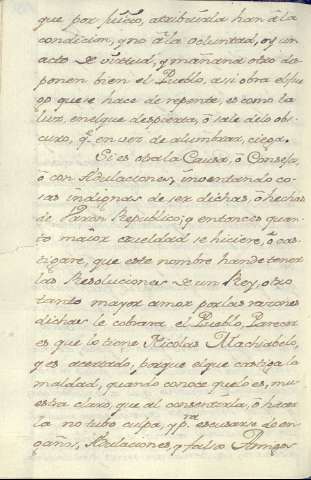 que por fuero, atribuirla han á la
condicion, y no á la voluntad, oy un
acto de virtud, y mañana otro dis-
ponen bien el Pueblo, asi obra el fue-
go que se hace de repente, es como la
luz, en el que despierta, ó sale de lo obs-
curo, q.e en vez de alumbrar, ciega.
Si es otra la Causa, ó Consejo,
ó con Adulaciones, inventando co-
sas indignas de ser dichas, ó hechas
de Varon Republico; y entonces quan-
to maior crueldad se hiciere, ó cas-
tigare, que este nombre han de tener
las Resoluciones de un Rey, otro
tando mayor amor por las razones
dichas le cobrara el Pueblo, Parecer
es que lo tiene Nicolas Machiabelo,
y es acertado, porque el que castiga la
maldad, quando conoce que lo es, mu-
estra claro, que al consentirla, ó hacer-
la no tubo culpa, y p.a escusarse de en-
gaños, Adulaciones, y falso Amigos